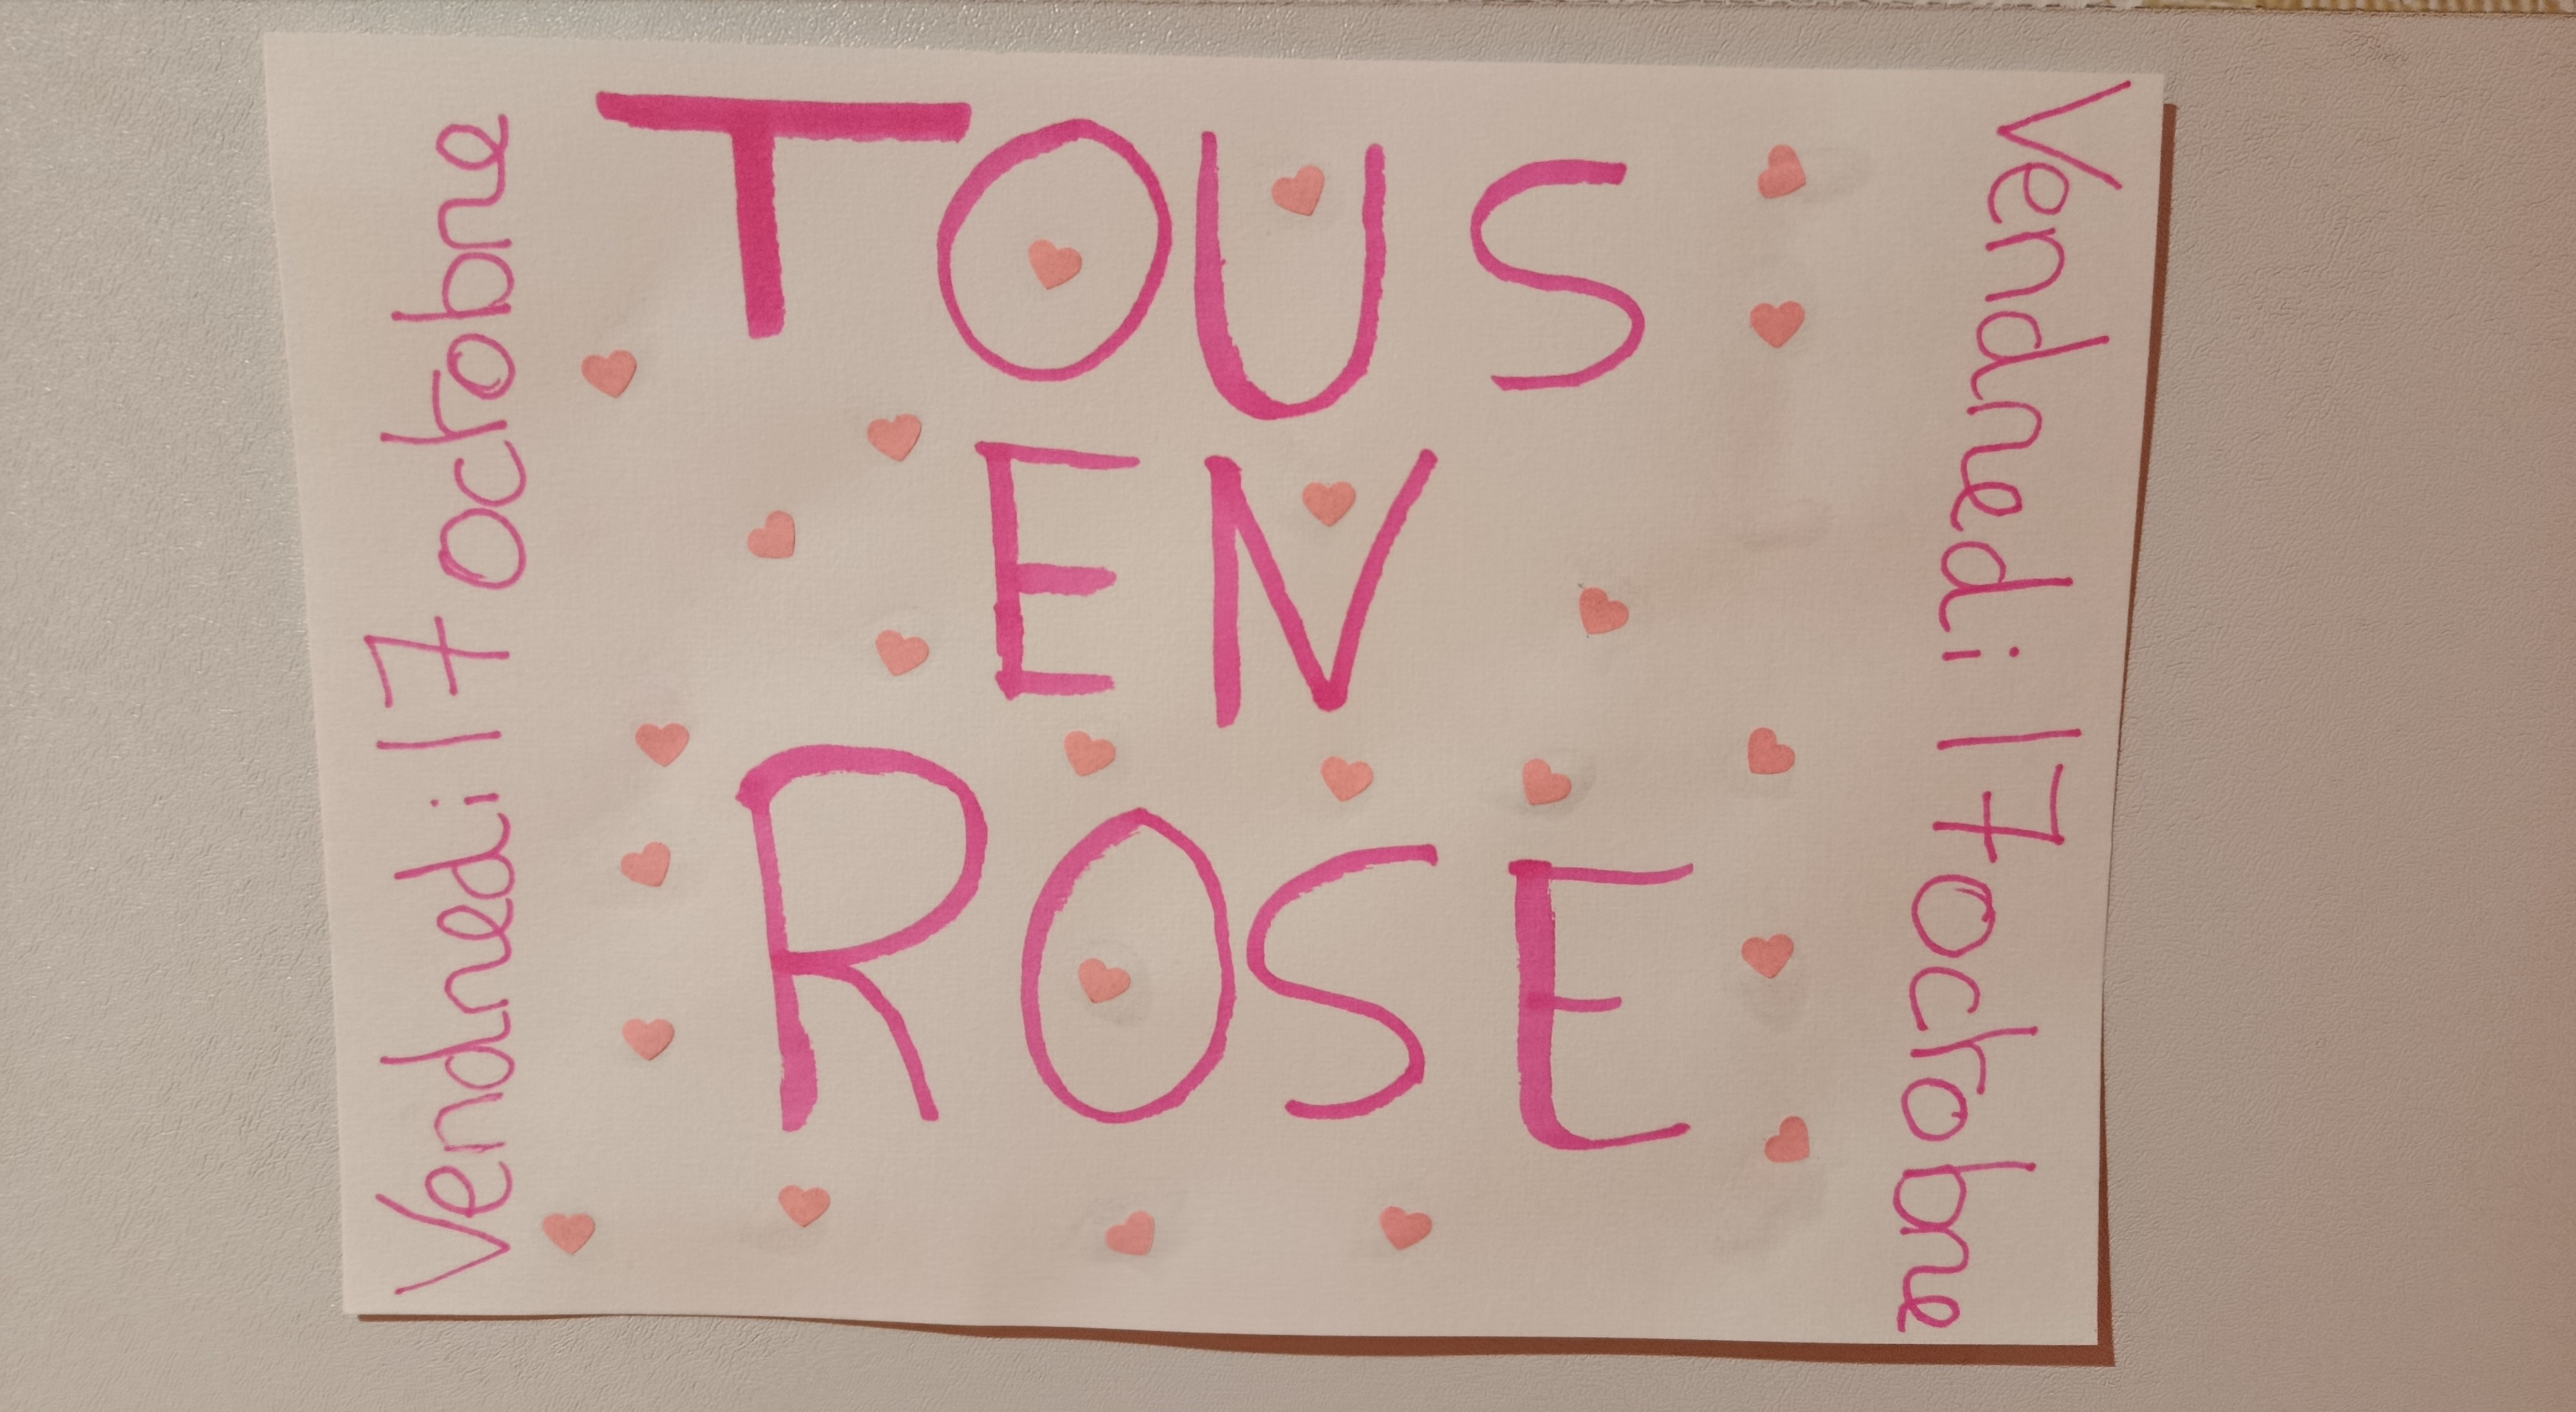 Vendredi 17 octobre
TOUS
EN
ROSE
Vendredi 17 octobre